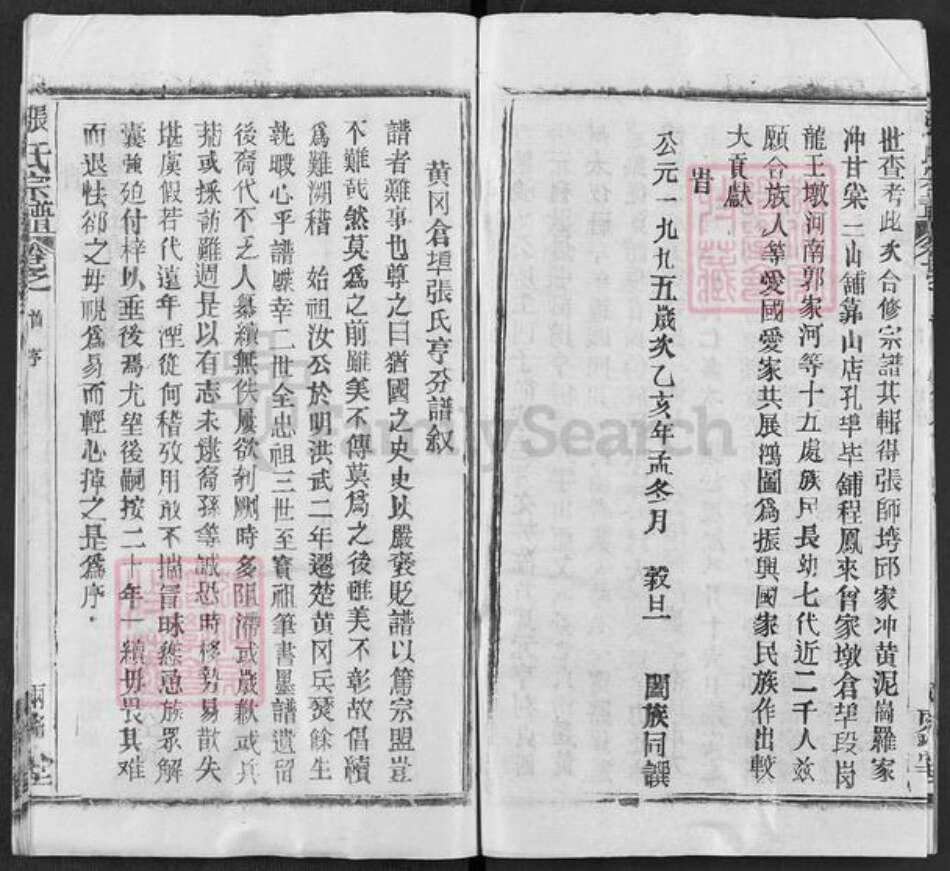 世查考此次合修宗譜共輯得張師塆邱家冲黄泥崗羅家
冲甘棠二山舖靠山店孔埠毕舖程鳳來曾家墩倉埠段崗
龍王墩河南郭家河等十五處族民長幼七代近二千人兹
願合族人等愛國愛家共展鴻圖爲振興國家民族作出較
大貢獻
旹
公元一九九五歲次乙亥年孟冬月 穀旦 闔族同譔
黄冈倉埠張氏亨分譜叙
譜者難事也尊之曰猶國之史史以嚴褒貶譜以篤宗盟豈
不難哉然莫爲之前雖美不傳莫爲之後雖美不彰故倡續
爲難溯稽 始祖汝公於明洪武二年遷楚黄冈兵燹餘生
孰暇心乎譜牒幸二世全忠祖三世至寳祖筆書墨譜遺留
後裔代不乏人纂續無佚屢欲剞劂時多阻滯或歲歉或兵
荒或採訪難週是以有志未逮裔孫等誠恐時移勢易散失
堪虞假若代遠年湮從何稽攷用敢不揣冒昧慫恿族眾解
囊強廹付梓以垂後焉尤望後嗣按二十年一續毋畏其難
而退怯郤之毋視爲易而輕心掉之是爲序．
張氏宗譜
卷之
首
序
兩銘堂
FamilySearch